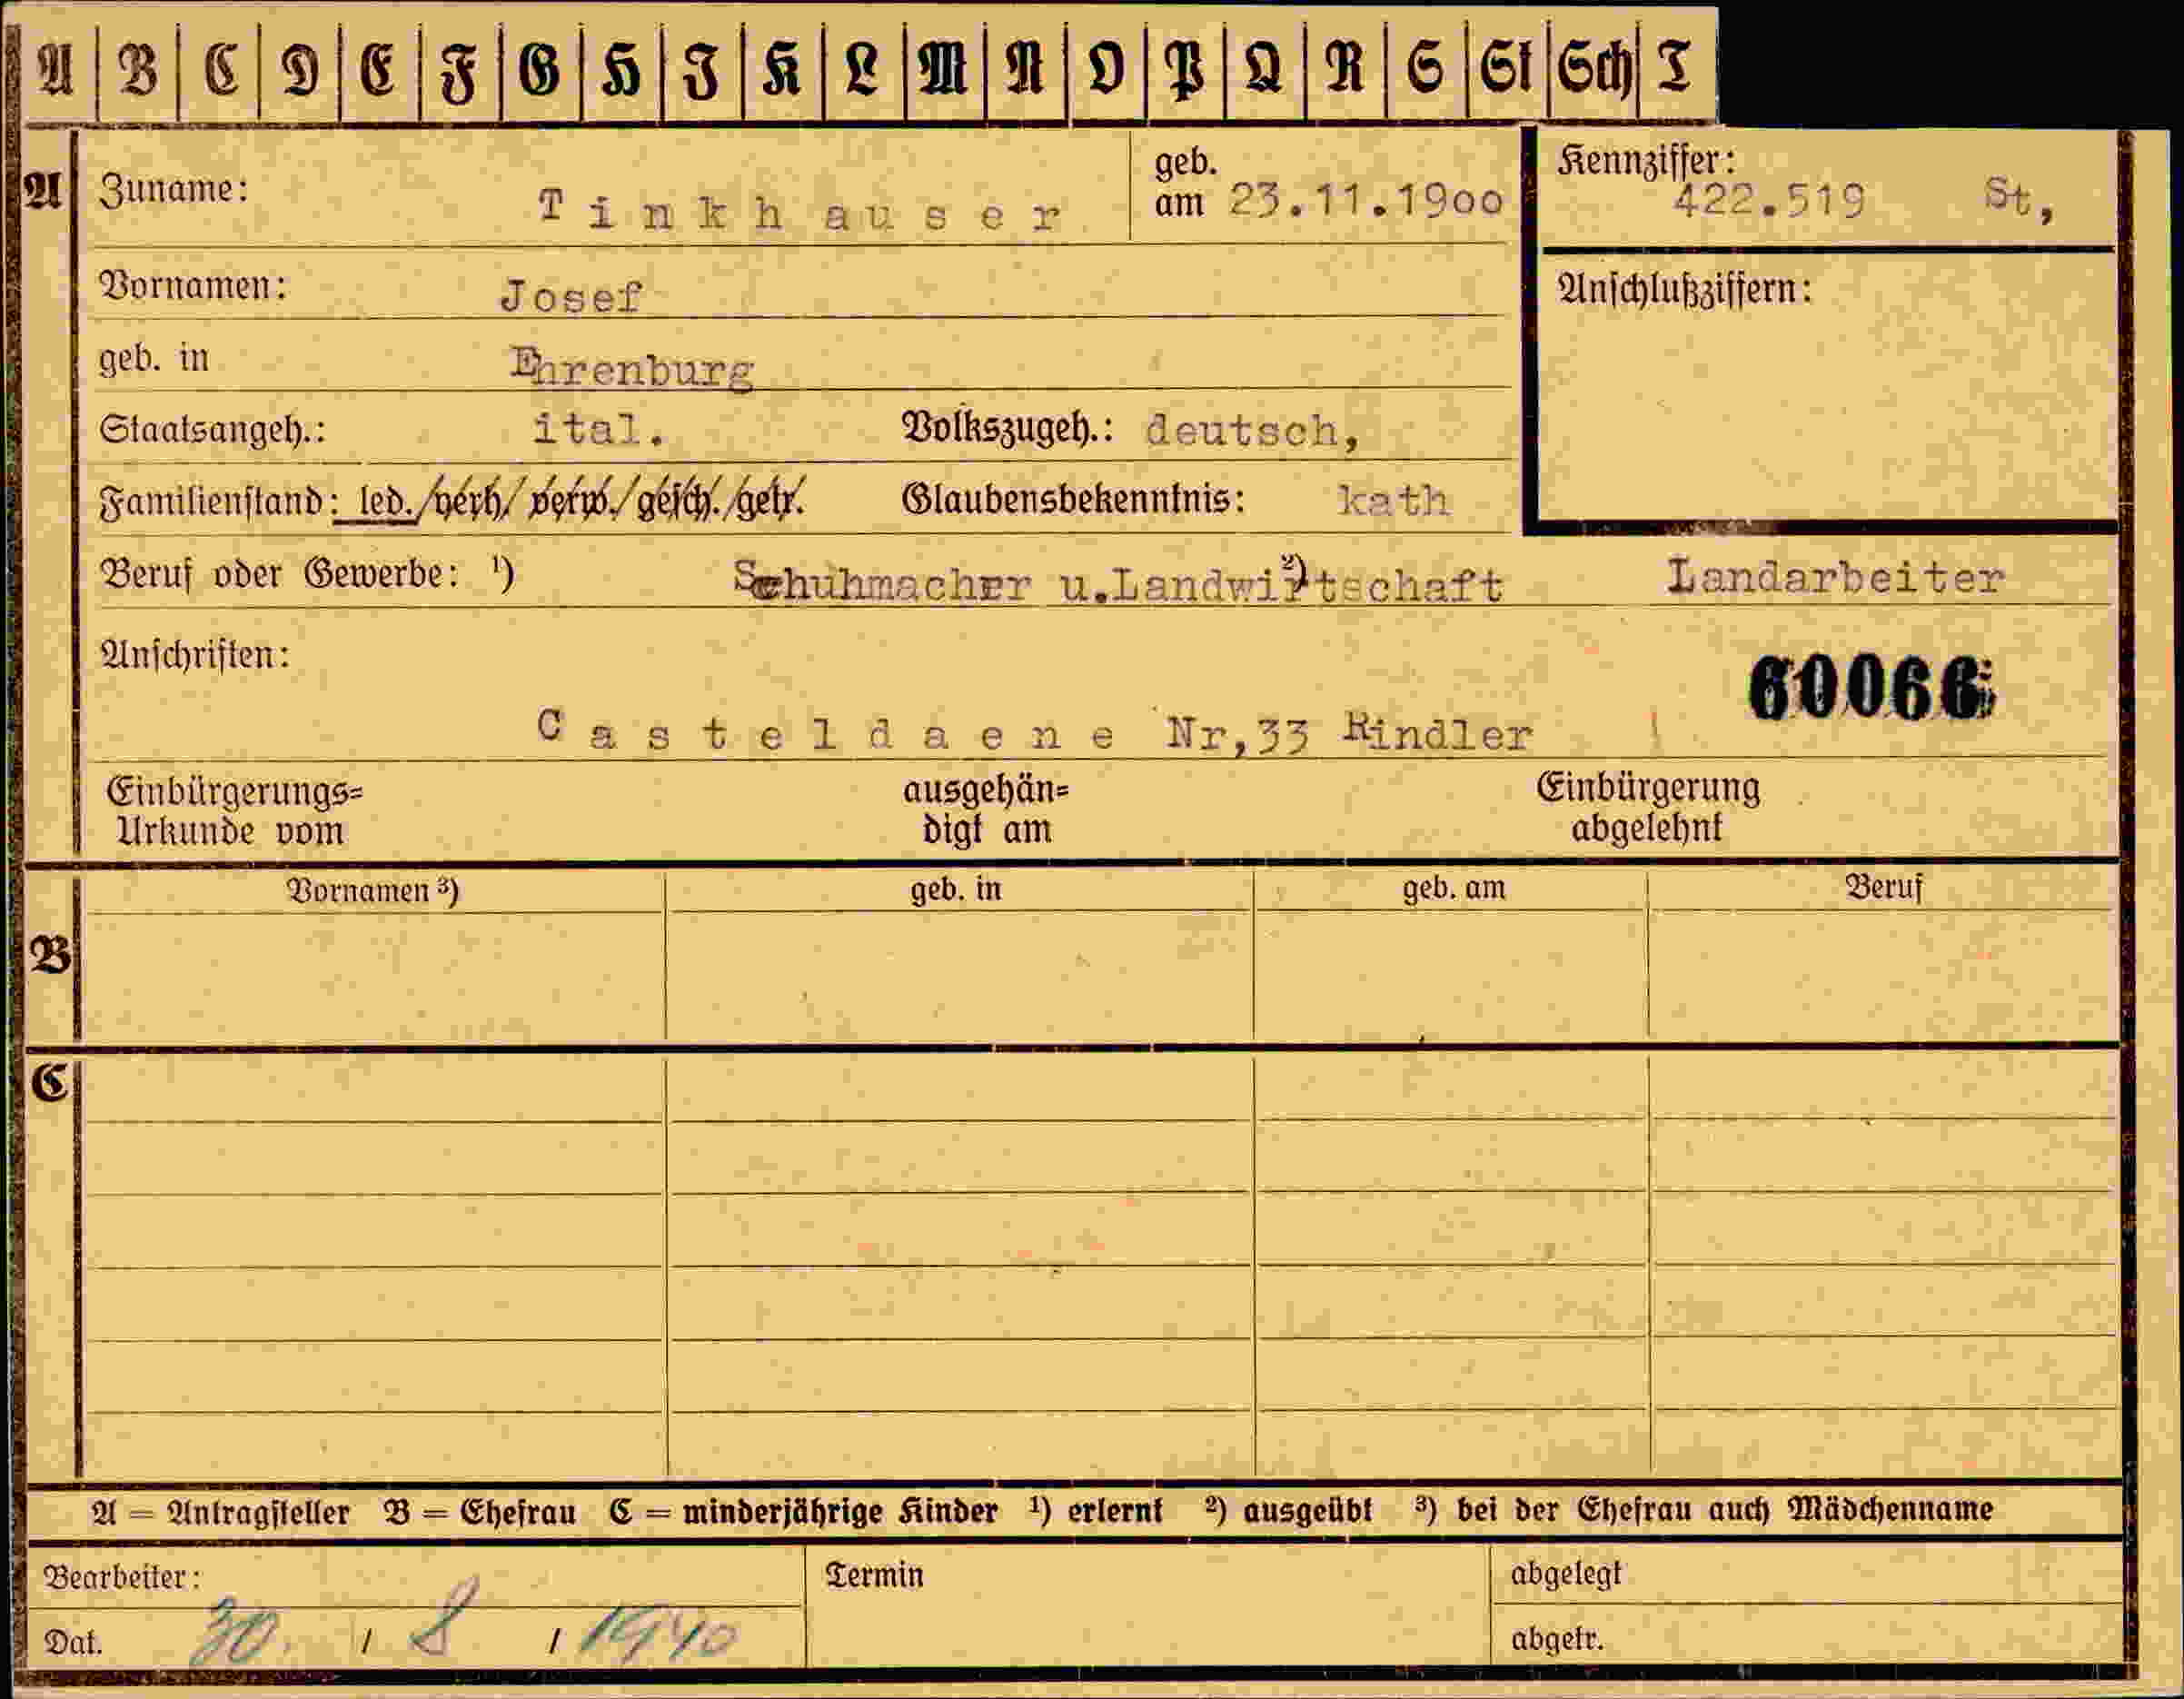 A B C D E F G H J K L M N O P Q R S St Sch T
A Zuname: Tinkhauser geb. am 23.11.19oo Kennziffer: 422.519 St,
Vornamen: Josef Anschlußziffern:
geb. in Ehrenburg
Staatsangeh.: ital. Volkszugeh.: deutsch,
Familienstand: led./verh/verw./gesch./getr. Glaubensbekenntnis: kath
Beruf oder Gewerbe: ¹) Schuhmacher u.Landwirtschaft ²) Landarbeiter
Anschriften:
60066
Casteldaene Nr,33 Rindler
Einbürgerungs= ausgehän= Einbürgerung
Urkunde vom digt am abgelehnt
Vornamen ³) geb. in geb. am Beruf
B
C
A = Antragsteller B = Ehefrau C = minderjährige Kinder ¹) erlernt ²) ausgeübt ³) bei der Ehefrau auch Mädchenname
Bearbeiter: Termin abgelegt
Dat. 30. / 8 / 1940 abgetr.